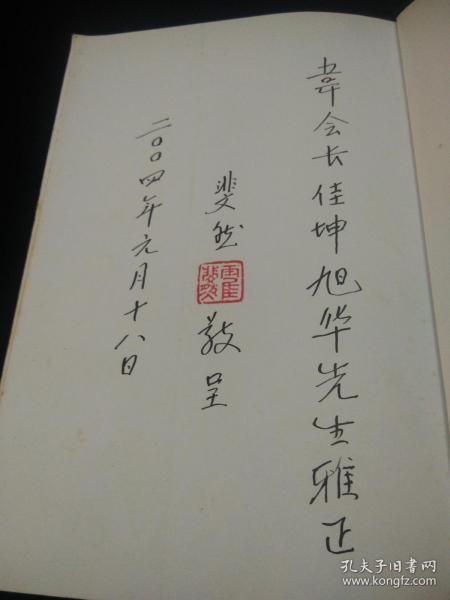 韋会长佳坤旭华先生雅正
斐然
霍斐然
敬呈
二〇〇四年元月十八日
孔夫子旧书网
www.kongfz.com